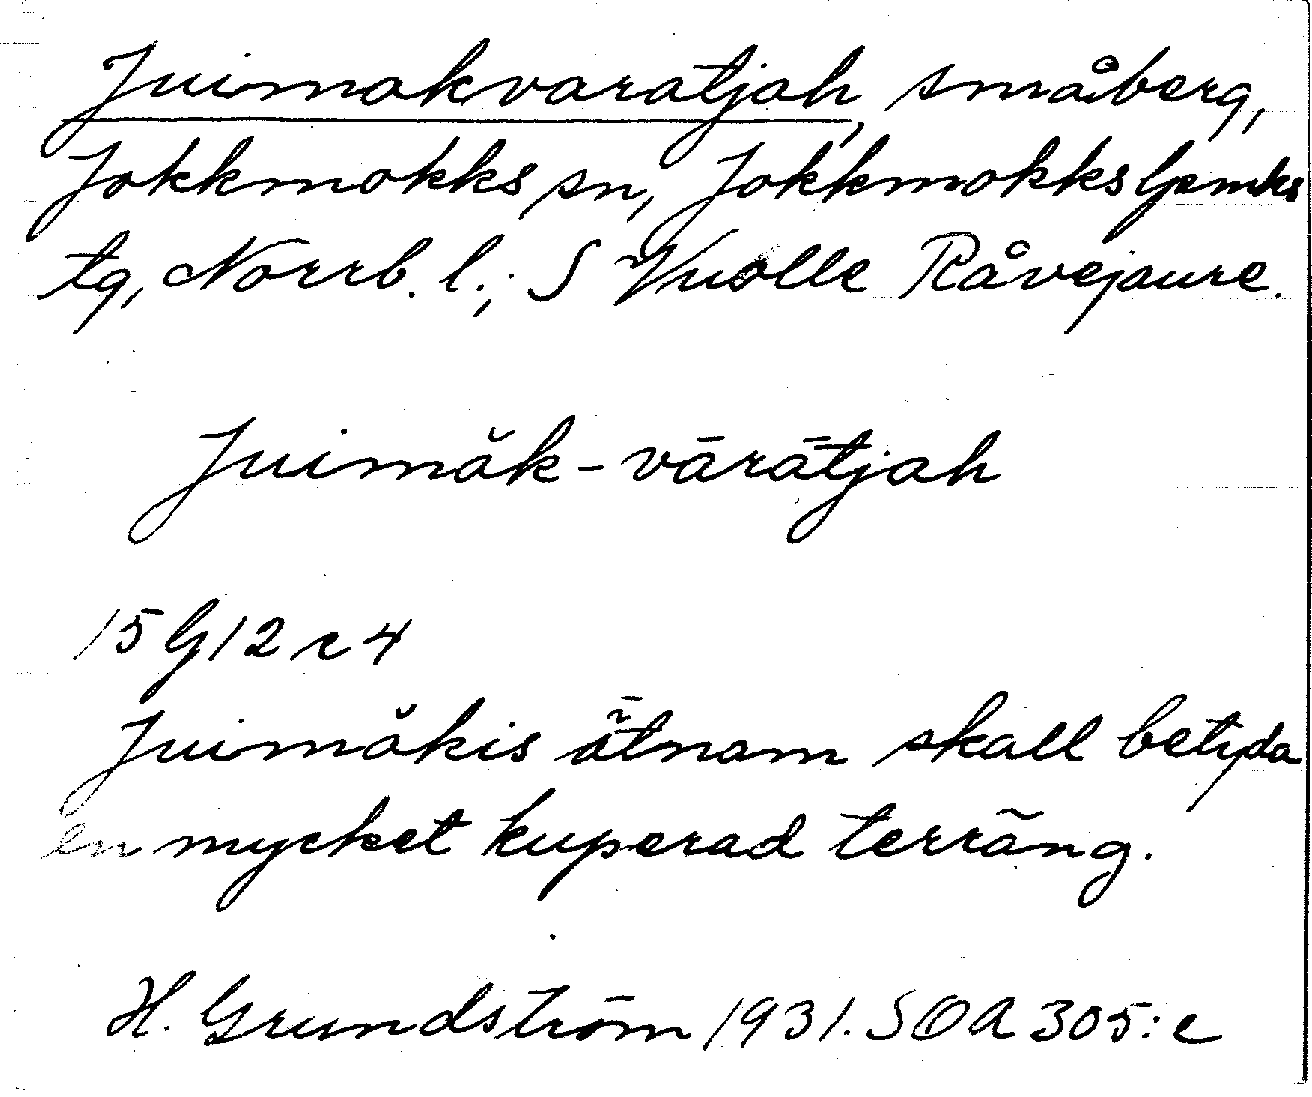 Juimakvaratjah, småberg,
Jokkmokks sn, Jokkmokks lpmks
tg, Norrb. l.; S Vuolle Råvejaure.
Juimăk-vārātjah
15 G 12 c 4
Juimăkis ätnam skall betyda
en mycket kuperad terräng.
H. Grundström 1931. SOA 305:c